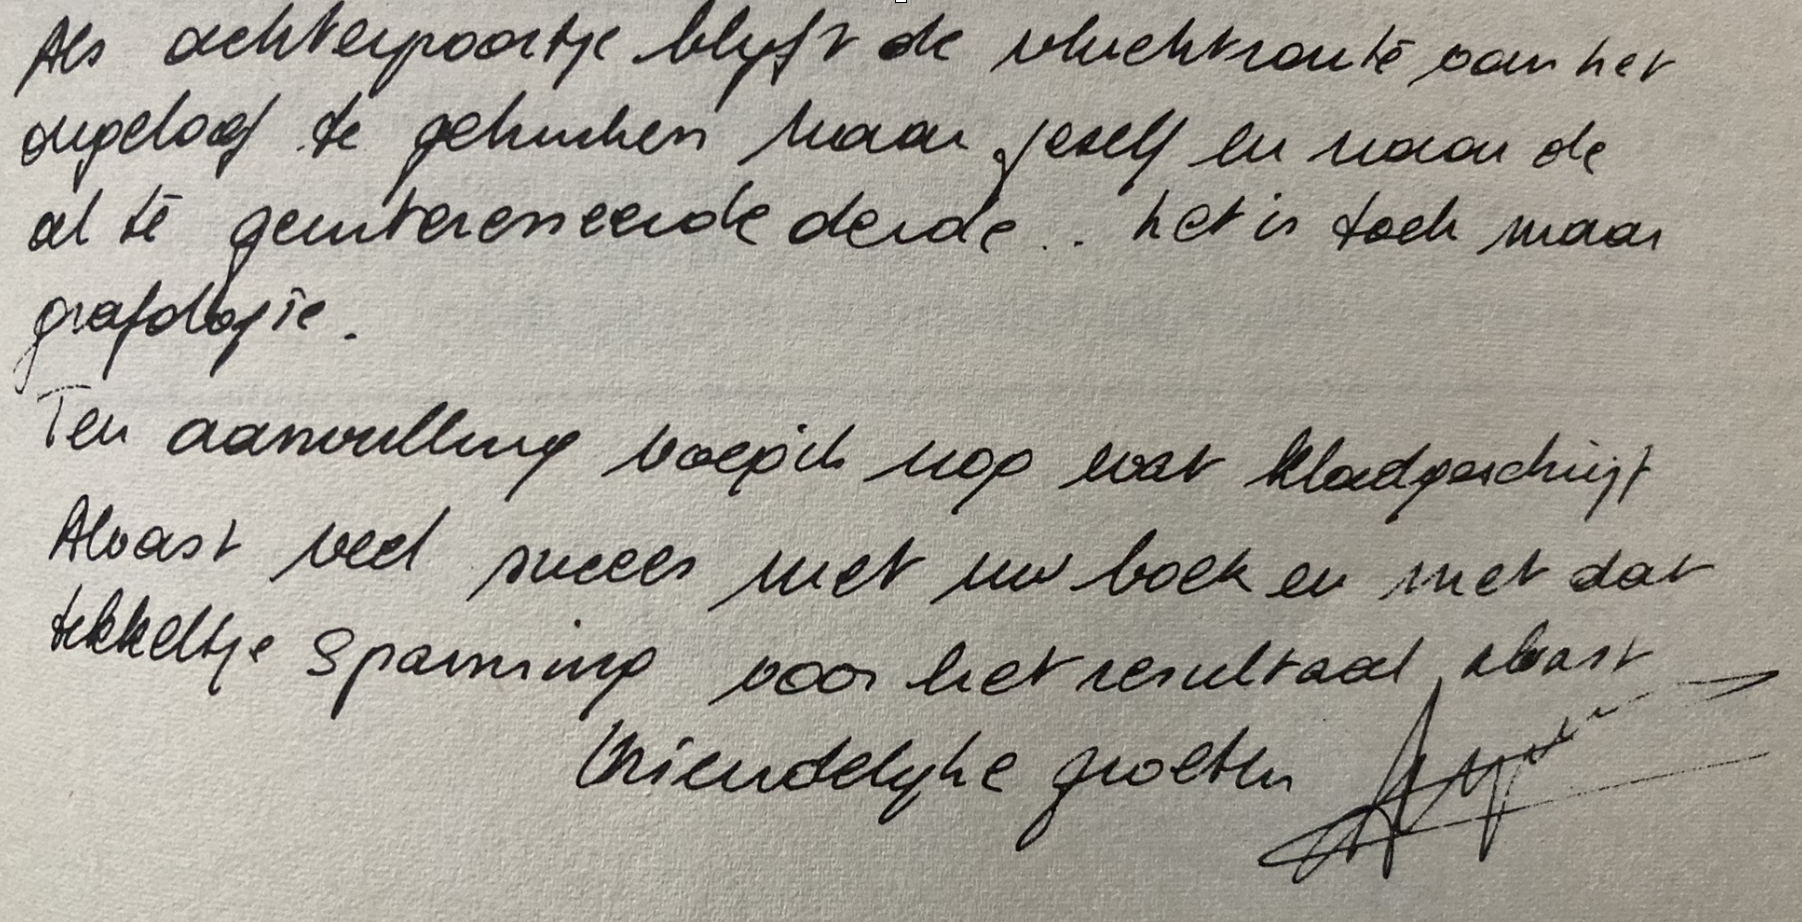 Als achterpoortje blijft de vluchtroute van het
ongeloof te gebruiken naar jezelf en naar de
al te geinteresseerde derde .. het is toch maar
grafologie.
Ten aanvulling voeg ik nog wat kladgeschrift
Alvast veel succes met uw boek en met dat
tikkeltje spanning voor het resultaat alvast
Vriendelijke groeten